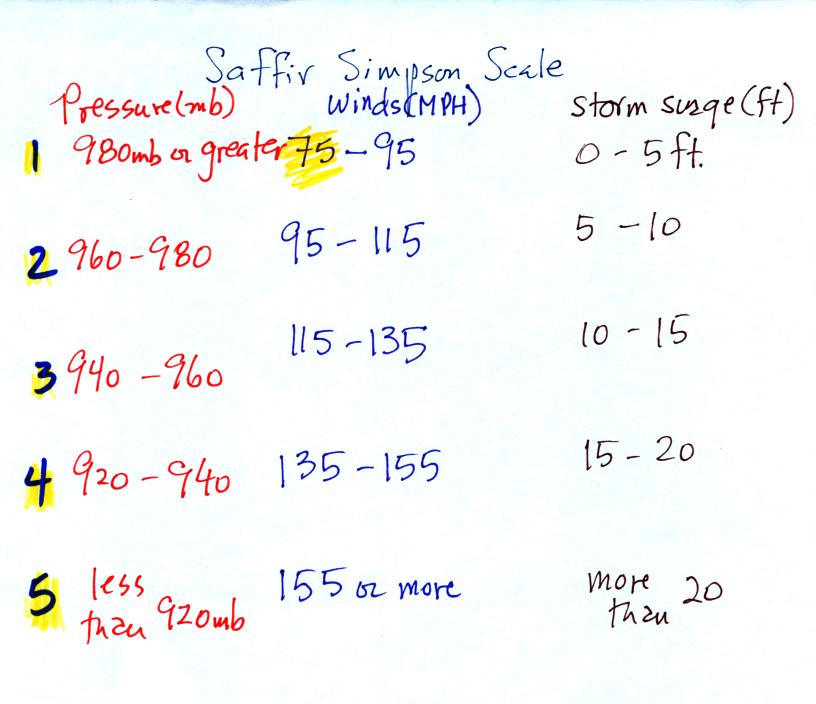 Saffir Simpson Scale
Pressure(mb) Winds(MPH) storm surge(ft)
1 980mb or greater 75-95 0-5ft.
2 960-980 95-115 5-10
3 940-960 115-135 10-15
4 920-940 135-155 15-20
5 less than 920mb 155 or more more than 20